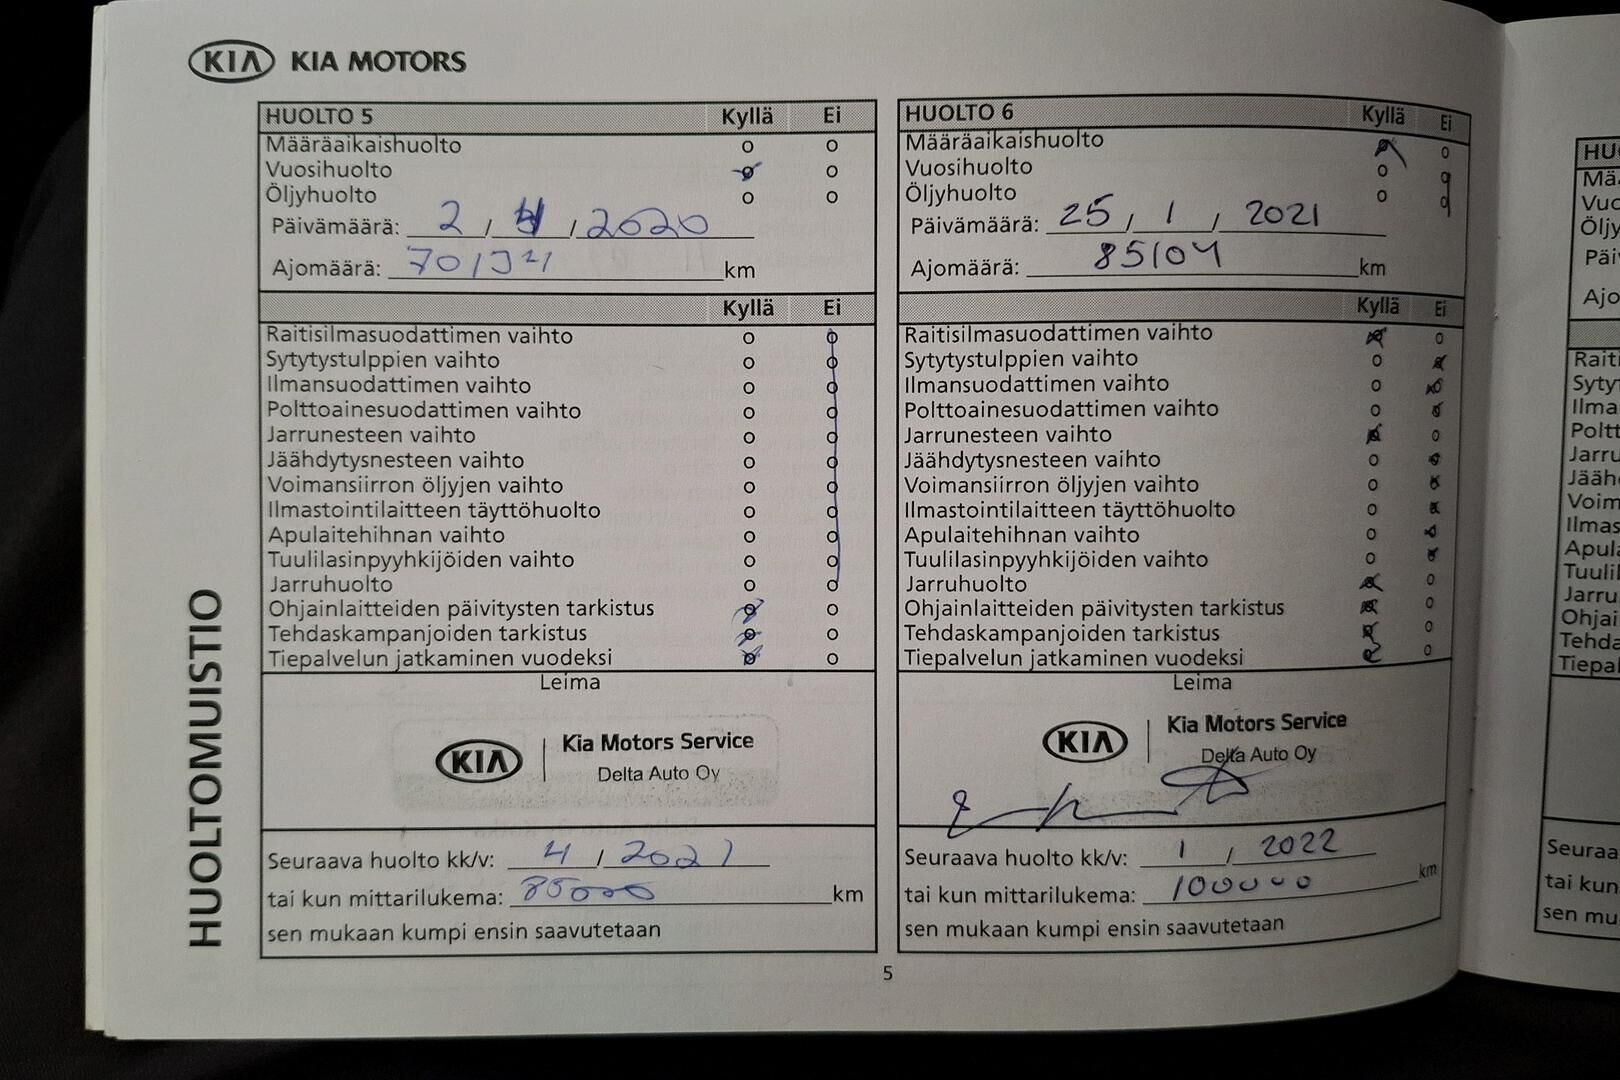 KIA KIA MOTORS
HUOLTOMUISTIO
HUOLTO 5 Kyllä Ei
Määräaikaishuolto o o
Vuosihuolto o o
Öljyhuolto o o
Päivämäärä: 2 / 4 / 2020
Ajomäärä: km
Kyllä Ei
Raitisilmasuodattimen vaihto o o
Sytytystulppien vaihto o o
Ilmansuodattimen vaihto o o
Polttoainesuodattimen vaihto o o
Jarrunesteen vaihto o o
Jäähdytysnesteen vaihto o o
Voimansiirron öljyjen vaihto o o
Ilmastointilaitteen täyttöhuolto o o
Apulaitehihnan vaihto o o
Tuulilasinpyyhkijöiden vaihto o o
Jarruhuolto o o
Ohjainlaitteiden päivitysten tarkistus o o
Tehdaskampanjoiden tarkistus o o
Tiepalvelun jatkaminen vuodeksi o o
Leima
KIA | Kia Motors Service
Delta Auto Oy
Seuraava huolto kk/v: 4 / 2021
tai kun mittarilukema: 85000 km
sen mukaan kumpi ensin saavutetaan
HUOLTO 6 Kyllä Ei
Määräaikaishuolto o o
Vuosihuolto o o
Öljyhuolto o o
Päivämäärä: 25 / 1 / 2021
Ajomäärä: 85104 km
Kyllä Ei
Raitisilmasuodattimen vaihto o o
Sytytystulppien vaihto o o
Ilmansuodattimen vaihto o o
Polttoainesuodattimen vaihto o o
Jarrunesteen vaihto o o
Jäähdytysnesteen vaihto o o
Voimansiirron öljyjen vaihto o o
Ilmastointilaitteen täyttöhuolto o o
Apulaitehihnan vaihto o o
Tuulilasinpyyhkijöiden vaihto o o
Jarruhuolto o o
Ohjainlaitteiden päivitysten tarkistus o o
Tehdaskampanjoiden tarkistus o o
Tiepalvelun jatkaminen vuodeksi o o
Leima
KIA | Kia Motors Service
Delta Auto Oy
Seuraava huolto kk/v: 1 / 2022
tai kun mittarilukema: 100000 km
sen mukaan kumpi ensin saavutetaan
5
HU
Mää
Vuo
Öljy
Päi
Ajo
Rait
Syty
Ilma
Poltt
Jarru
Jääh
Voim
Ilmas
Apula
Tuulil
Jarru
Ohjai
Tehda
Tiepal
Seuraa
tai kun
sen mu